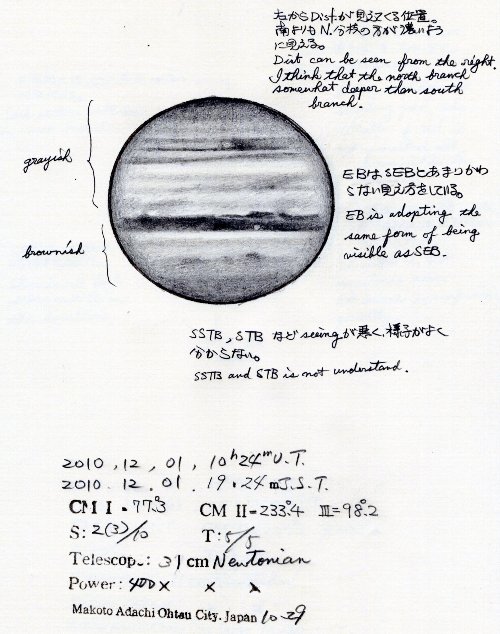 右からDist.が見えてくる位置。
南よりもN.分枝の方が濃いよう
に見える。
Dist can be seen from the right.
I think that the north branch
somewhat deeper than south
branch.
grayish
EBはSEBとあまりかわ
らない見え方をしている。
EB is adopting the
same form of being
visible as SEB.
brownish
SSTB, STB など seeingが悪く、様子がよく
分からない。
SSTB and STB is not understand.
2010, 12, 01, 10h24m U.T.
2010. 12. 01. 19.24 m J.S.T.
CM I = 77.°3 CM II = 233.°4 III = 98.°2
S: 2(3)/10 T: 5/5
Telescop.: 31 cm Newtonian
Power: 400 × × ×
Makoto Adachi Ohtsu City. Japan 10-29